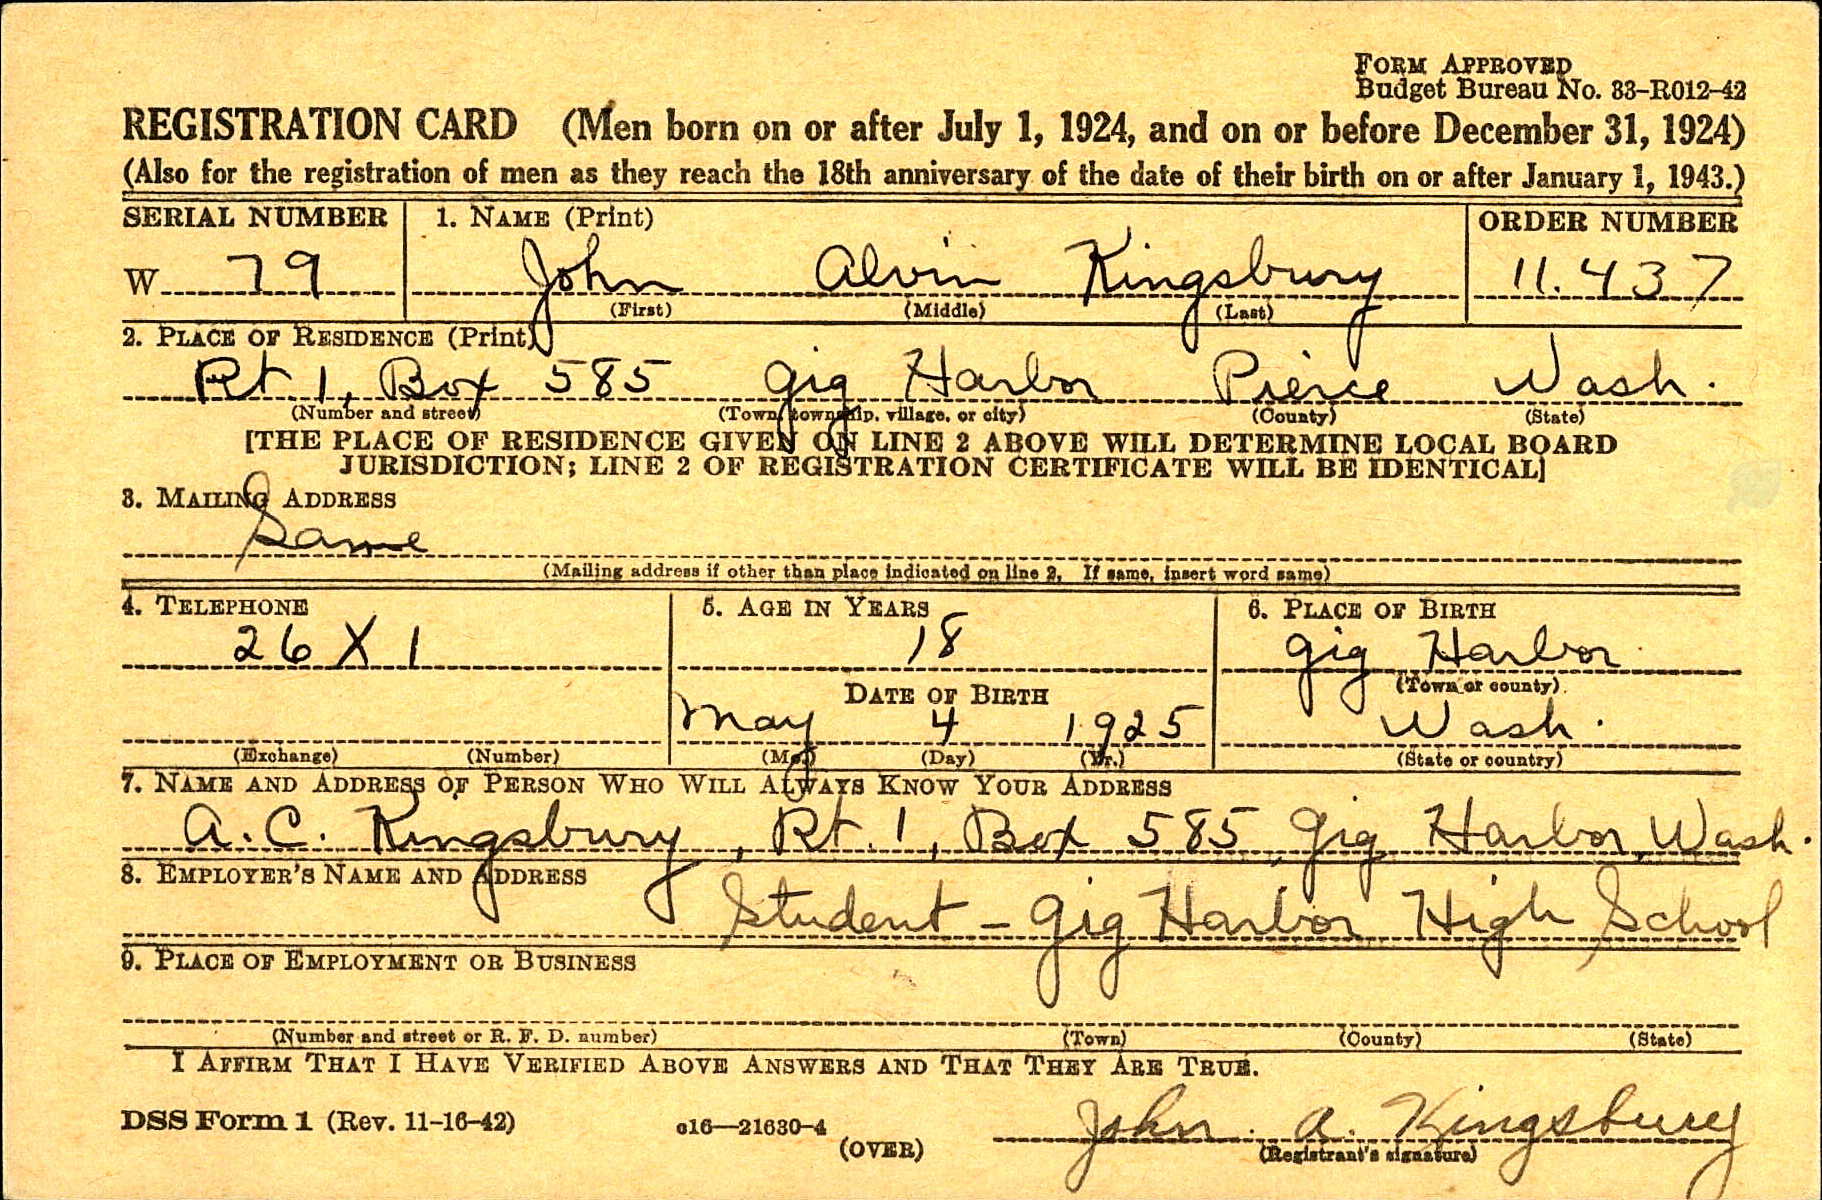 FORM APPROVED
Budget Bureau No. 33-R012-42
REGISTRATION CARD (Men born on or after July 1, 1924, and on or before December 31, 1924)
(Also for the registration of men as they reach the 18th anniversary of the date of their birth on or after January 1, 1943.)
SERIAL NUMBER 1. NAME (Print) ORDER NUMBER
W 79 John Alvin Kingsbury 11.437
(First) (Middle) (Last)
2. PLACE OF RESIDENCE (Print)
Rt 1, Box 585 Gig Harbor Pierce Wash.
(Number and street) (Town, township, village, or city) (County) (State)
[THE PLACE OF RESIDENCE GIVEN ON LINE 2 ABOVE WILL DETERMINE LOCAL BOARD
JURISDICTION; LINE 2 OF REGISTRATION CERTIFICATE WILL BE IDENTICAL]
3. MAILING ADDRESS
Same
(Mailing address if other than place indicated on line 2. If same, insert word same)
4. TELEPHONE 5. AGE IN YEARS 6. PLACE OF BIRTH
26 X 1 18 Gig Harbor
(Town or county)
DATE OF BIRTH
May 4 1925 Wash.
(Exchange) (Number) (Mo.) (Day) (Yr.) (State or country)
7. NAME AND ADDRESS OF PERSON WHO WILL ALWAYS KNOW YOUR ADDRESS
A. C. Kingsbury, Rt. 1, Box 585, Gig Harbor, Wash.
8. EMPLOYER'S NAME AND ADDRESS
Student - Gig Harbor High School
9. PLACE OF EMPLOYMENT OR BUSINESS
(Number and street or R. F. D. number) (Town) (County) (State)
I AFFIRM THAT I HAVE VERIFIED ABOVE ANSWERS AND THAT THEY ARE TRUE.
DSS Form 1 (Rev. 11-16-42) c16—21630-4 John A. Kingsbury
(OVER) (Registrant's signature)